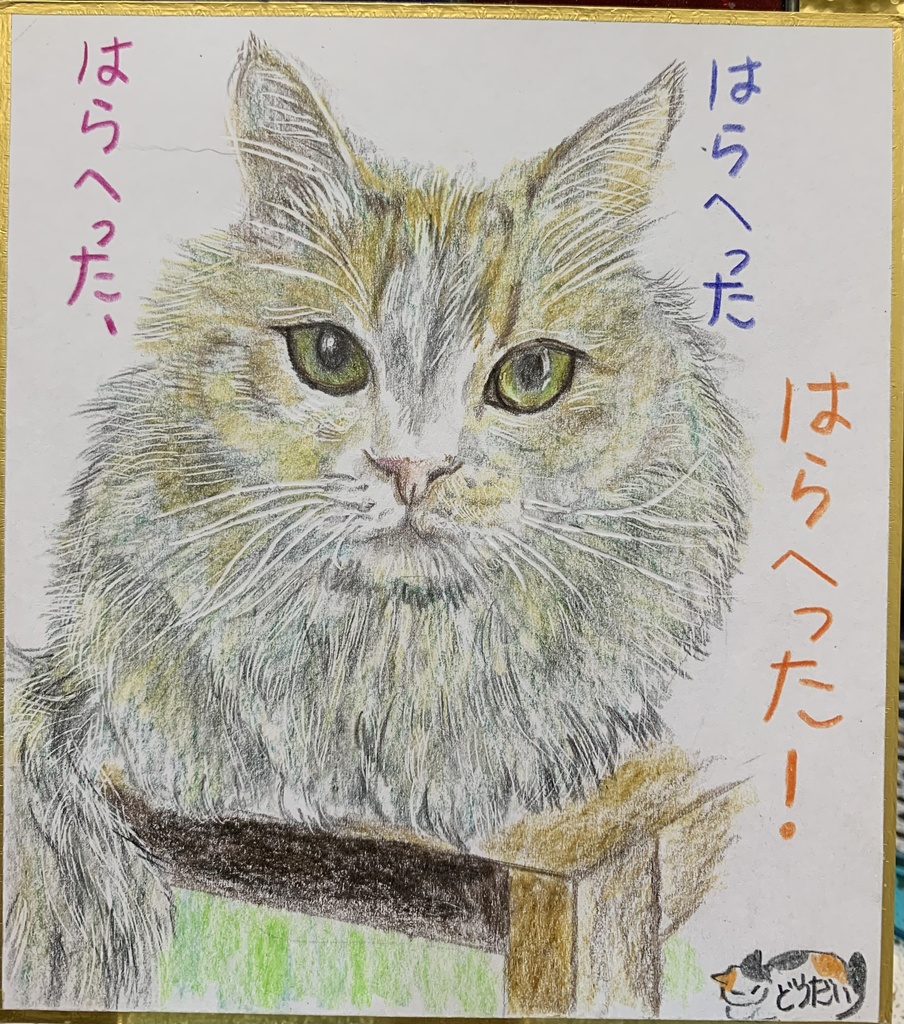 はらへった
はらへった!
はらへった、
どらだい